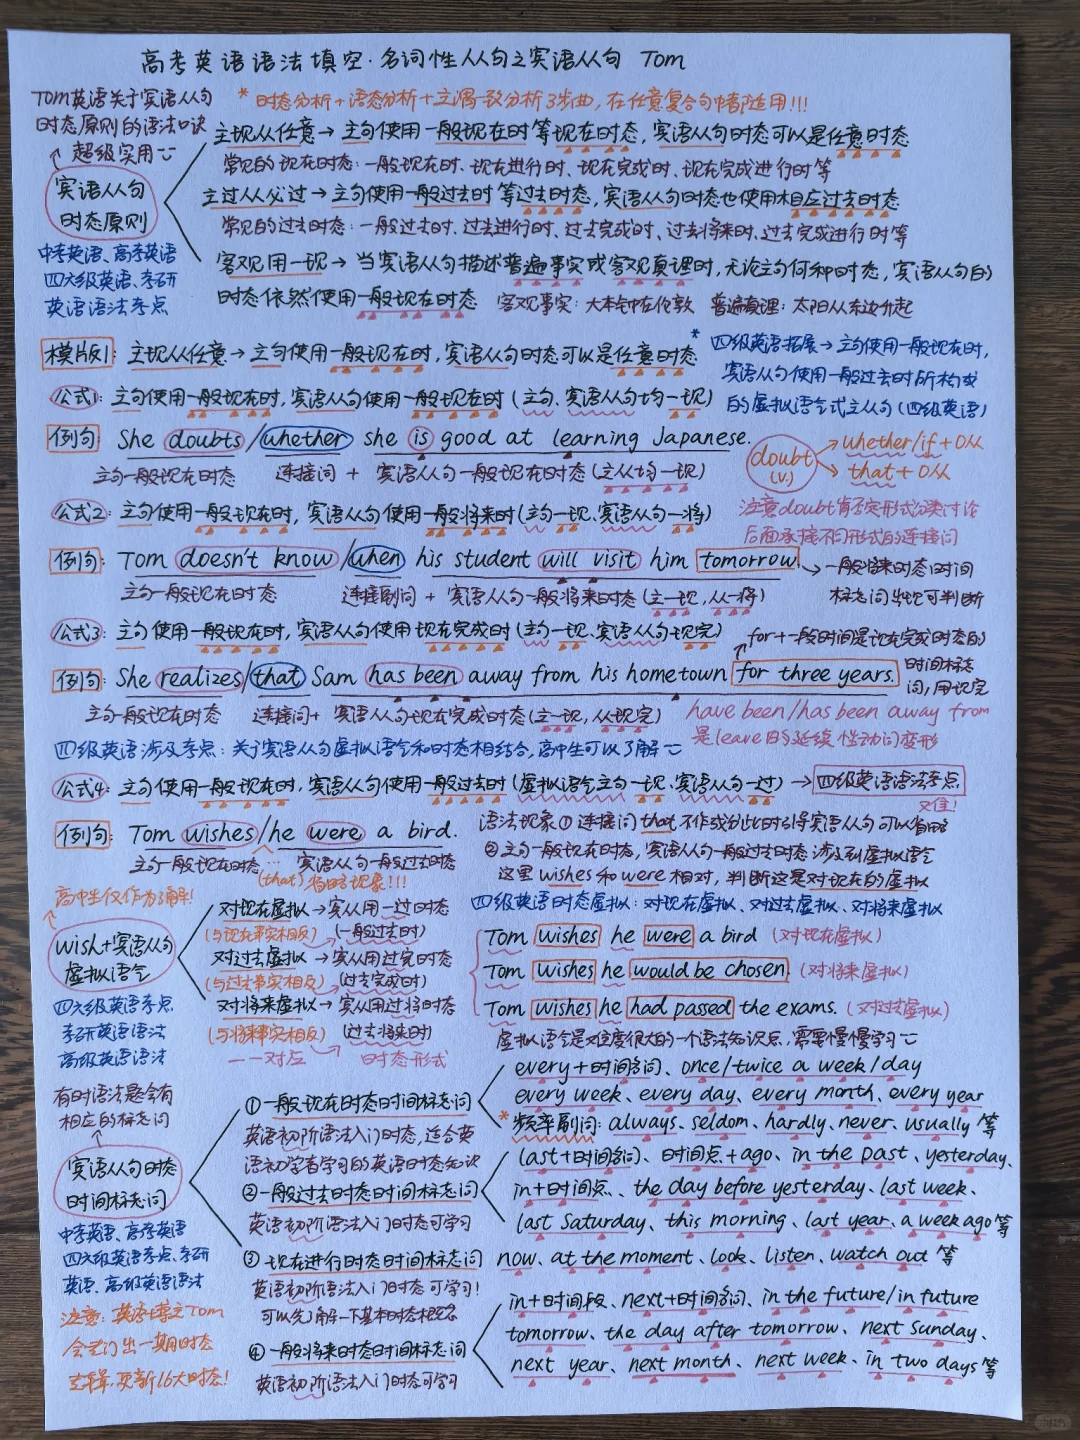 高考英语语法填空·名词性从句之宾语从句 Tom
Tom英语关于宾语从句
时态原则的语法口诀
超级实用
* 时态分析+语态分析+主谓一致分析3步曲,在任意复合句中都适用!!!
宾语从句
时态原则
中考英语、高考英语
四六级英语、考研
英语语法考点
主现从任意→主句使用一般现在时等现在时态,宾语从句时态可以是任意时态
常见的现在时态:一般现在时、现在进行时、现在完成时、现在完成进行时等
主过从必过→主句使用一般过去时等过去时态,宾语从句时态也使用相应过去时态
常见的过去时态:一般过去时、过去进行时、过去完成时、过去将来时、过去完成进行时等
客观用一现→当宾语从句描述普遍事实或客观真理时,无论主句何种时态,宾语从句的
时态依然使用一般现在时态 客观事实:大本钟在伦敦 普遍真理:太阳从东边升起
模版1:主现从任意→主句使用一般现在时,宾语从句时态可以是任意时态
* 四级英语拓展→主句使用一般现在时,
宾语从句使用一般过去时所构成
的虚拟语气式主从句(四级英语)
公式1:主句使用一般现在时,宾语从句使用一般现在时(主句、宾语从句均一现)
例句 She doubts/whether she is good at learning Japanese.
主句一般现在时态 连接词 + 宾语从句一般现在时态(主从均一现)
doubt
(v.)
whether/if+O从
that+O从
注意doubt肯否定形式分类讨论
后面承接不同形式的连接词
公式2:主句使用一般现在时,宾语从句使用一般将来时(主句一现、宾语从句一将)
例句:Tom doesn't know/when his student will visit him tomorrow
主句一般现在时态 连接副词 + 宾语从句一般将来时态(主一现,从一将)
一般将来时态时间
标志词出现可判断
公式3:主句使用一般现在时,宾语从句使用现在完成时(主句一现、宾语从句现完)
for+一段时间是现在完成时态的
时间标志
词,用现完
例句:She realizes/that Sam has been away from his hometown for three years.
主句一般现在时态 连接词+ 宾语从句现在完成时态(主一现,从现完)
have been/has been away from
是leave的延续性动词变形
四级英语涉及考点:关于宾语从句虚拟语气和时态相结合,高中生可以了解
公式4:主句使用一般现在时,宾语从句使用一般过去时(虚拟语气主句一现、宾语从句一过)→四级英语语法考点
又难!
例句:Tom wishes/he were a bird.
主句一般现在时态… 宾语从句一般过去时态
(that)省略现象!!!
语法现象① 连接词that不作成分此时引导宾语从句可以省略
②主句一般现在时态,宾语从句一般过去时态涉及到虚拟语气
这里wishes和were相对,判断这是对现在的虚拟
高中生仅作为了解!
wish+宾语从句
虚拟语气
四六级英语考点
考研英语语法
高级英语语法
对现在虚拟→宾从用一过时态
(与现在事实相反) (一般过去时)
对过去虚拟→宾从用过完时态
(与过去事实相反) (过去完成时)
对将来虚拟→宾从用过将时态
(与将来事实相反) (过去将来时)
一一对应 时态形式
四级英语时态虚拟:对现在虚拟、对过去虚拟、对将来虚拟
Tom wishes he were a bird (对现在虚拟)
Tom wishes he would be chosen (对将来虚拟)
Tom wishes he had passed the exams. (对过去虚拟)
虚拟语气是难度很大的一个语法知识点,需要慢慢学习
有时语法题会有
相应的标志词
宾语从句时态
时间标志词
中考英语、高考英语
四六级英语考点、考研
英语、高级英语语法
注意:英语博主Tom
会专门出一期时态
专辑,更新16大时态!
①一般现在时态时间标志词
英语初阶语法入门时态,适合英
语初学者学习的英语时态知识
every+时间名词、once/twice a week/day
every week、every day、every month、every year
* 频率副词:always、seldom、hardly、never、usually等
②一般过去时态时间标志词
英语初阶语法入门时态可学习
(last+时间名词)、时间点+ago、in the past、yesterday、
in+时间点、the day before yesterday、last week、
last Saturday、this morning、last year、a week ago等
③现在进行时态时间标志词
英语初阶语法入门时态可学习!
可以先了解一下基本时态概念
now、at the moment、look、listen、watch out等
④一般将来时态时间标志词
英语初阶语法入门时态可学习
in+时间段、next+时间名词、in the future/in future
tomorrow、the day after tomorrow、next Sunday、
next year、next month、next week、in two days等